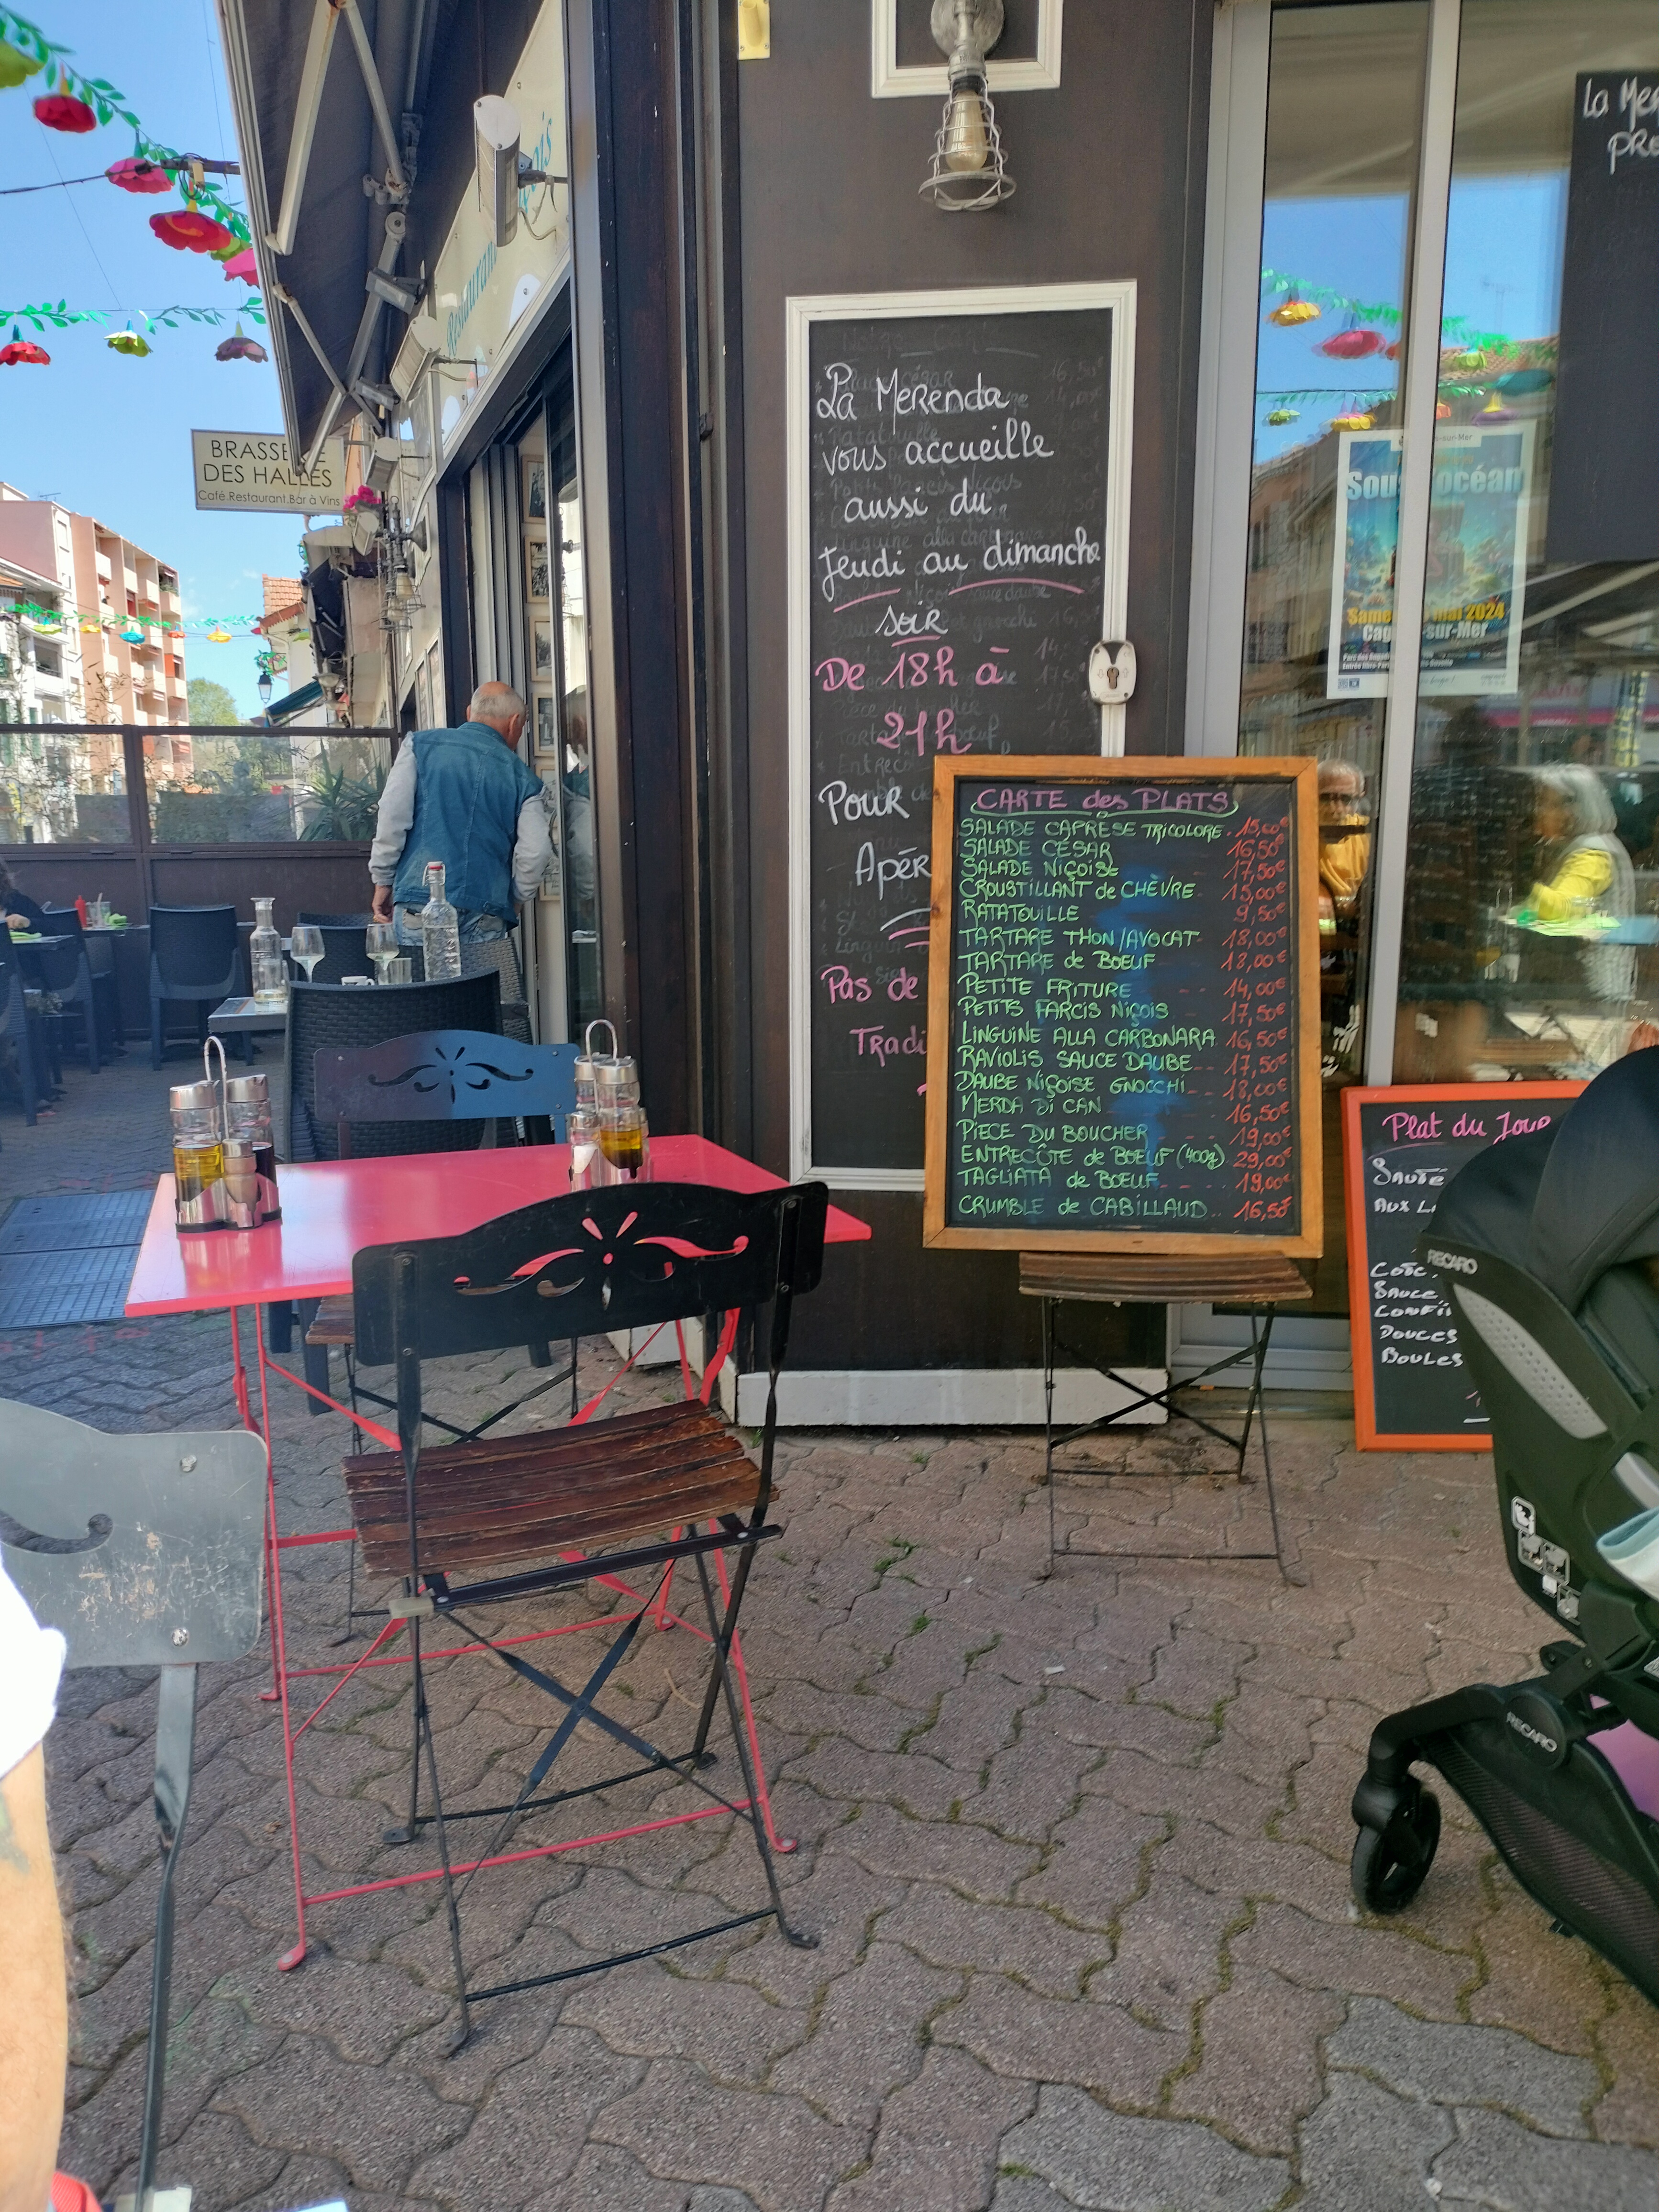 BRASSE E
DES HALLES
Café.Restaurant.Bar à Vins
Restaurant
La Merenda
vous accueille
aussi du
Jeudi au dimanche
soir
De 18h à
21h
Pour
Apér
Pas de
Tradi
CARTE des PLATS
SALADE CAPRÈSE TRICOLORE. 15,00€
SALADE CÉSAR 16,50€
SALADE NIÇOISE 17,50€
CROUSTILLANT de CHÈVRE 15,00€
RATATOUILLE 9,50€
TARTARE THON/AVOCAT 18,00€
TARTARE de BOEUF 18,00€
PETITE FRITURE -- - 14,00€
PETITS FARCIS NIÇOIS 17,50€
LINGUINE ALLA CARBONARA 16,50€
RAVIOLIS SAUCE DAUBE-- - 17,50€
DAUBE NIÇOISE GNOCCHI-- 18,00€
MERDA DI CAN 16,50€
PIÈCE DU BOUCHER - - 19,00€
ENTRECÔTE de BOEUF (400g) 29,00€
TAGLIATA de BOEUF- - . . . 19,00€
CRUMBLE de CABILLAUD.. 16,50€
La Me
PR
s-sur-Mer
Sous océan
Same mai 2024
Cag -sur-Mer
Plat du Jour
SAUTÉ
AUX L
SAUCE,
DOUCES
BOULES
RECARO
RECARO